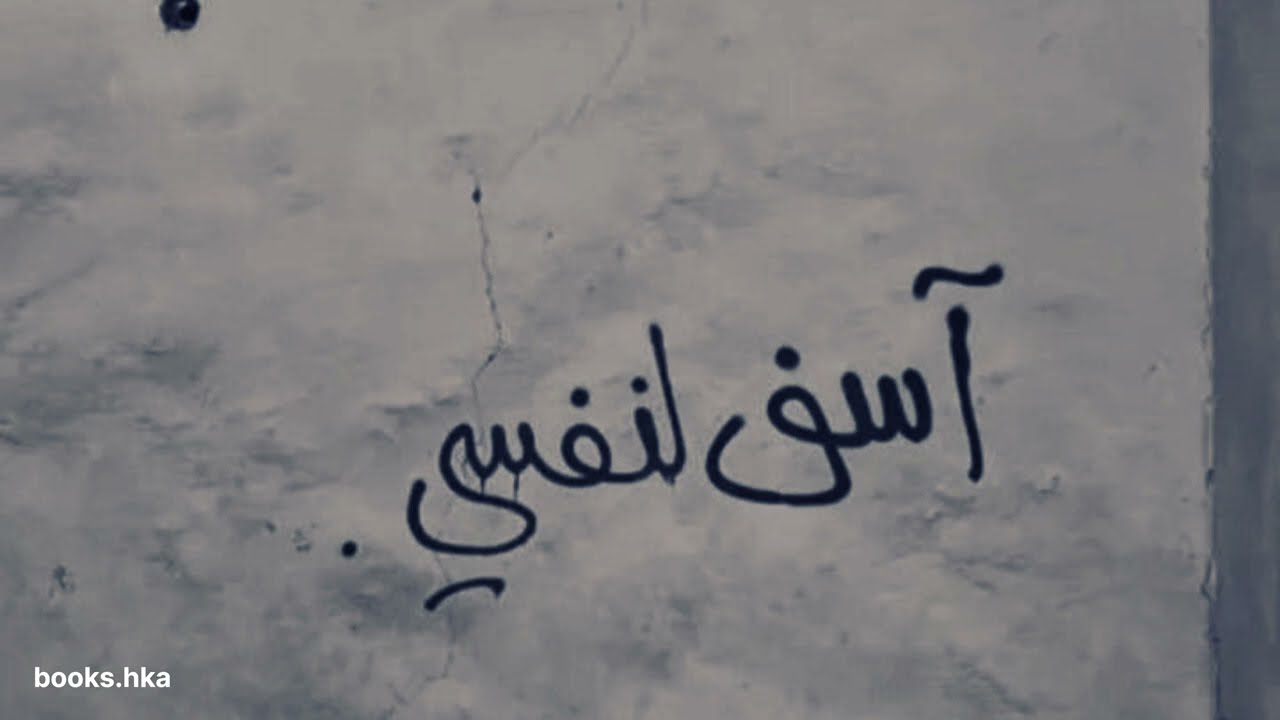 آسف لنفسي .
books.hka